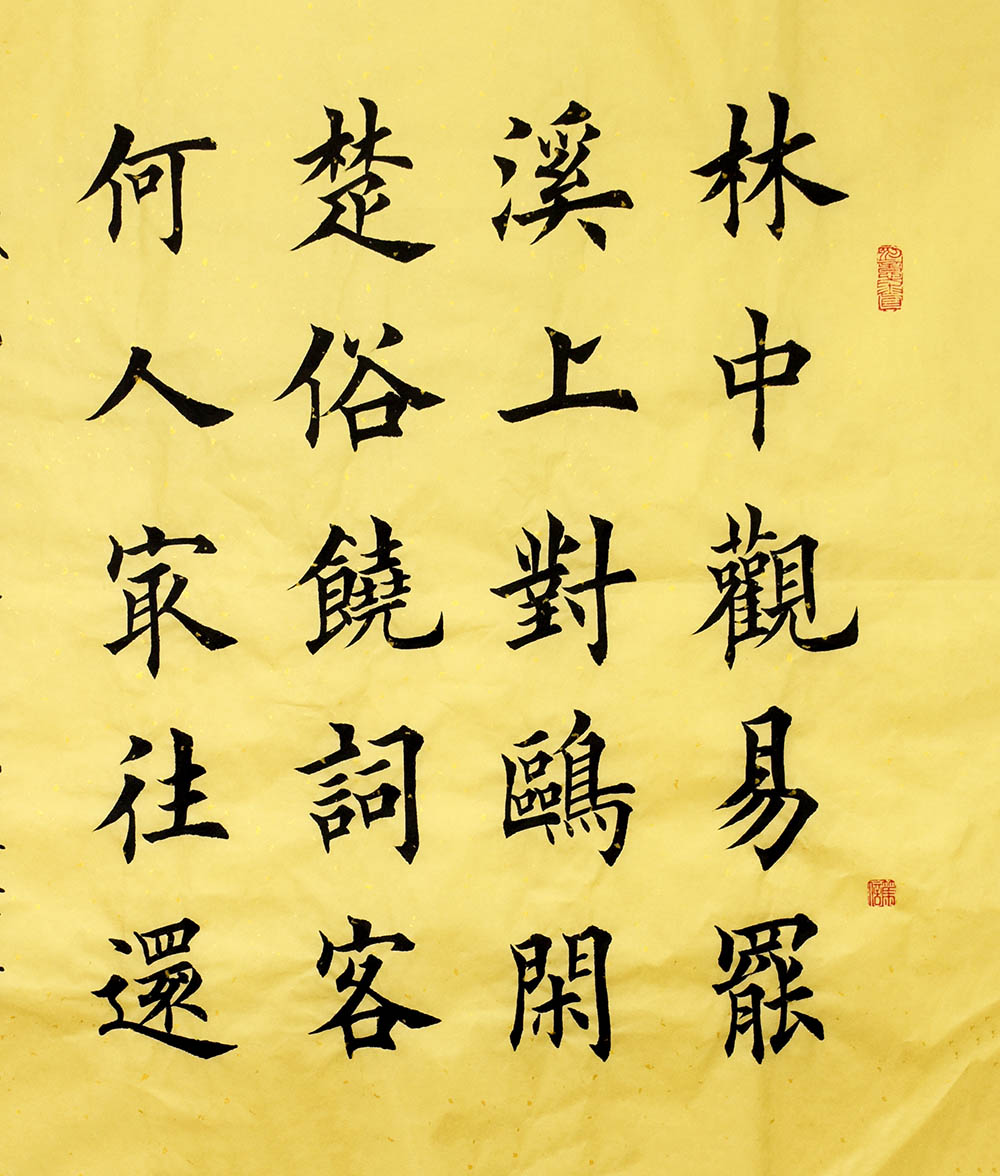 林中觀易罷
溪上對鷗閑
楚俗饒詞客
何人冣往還